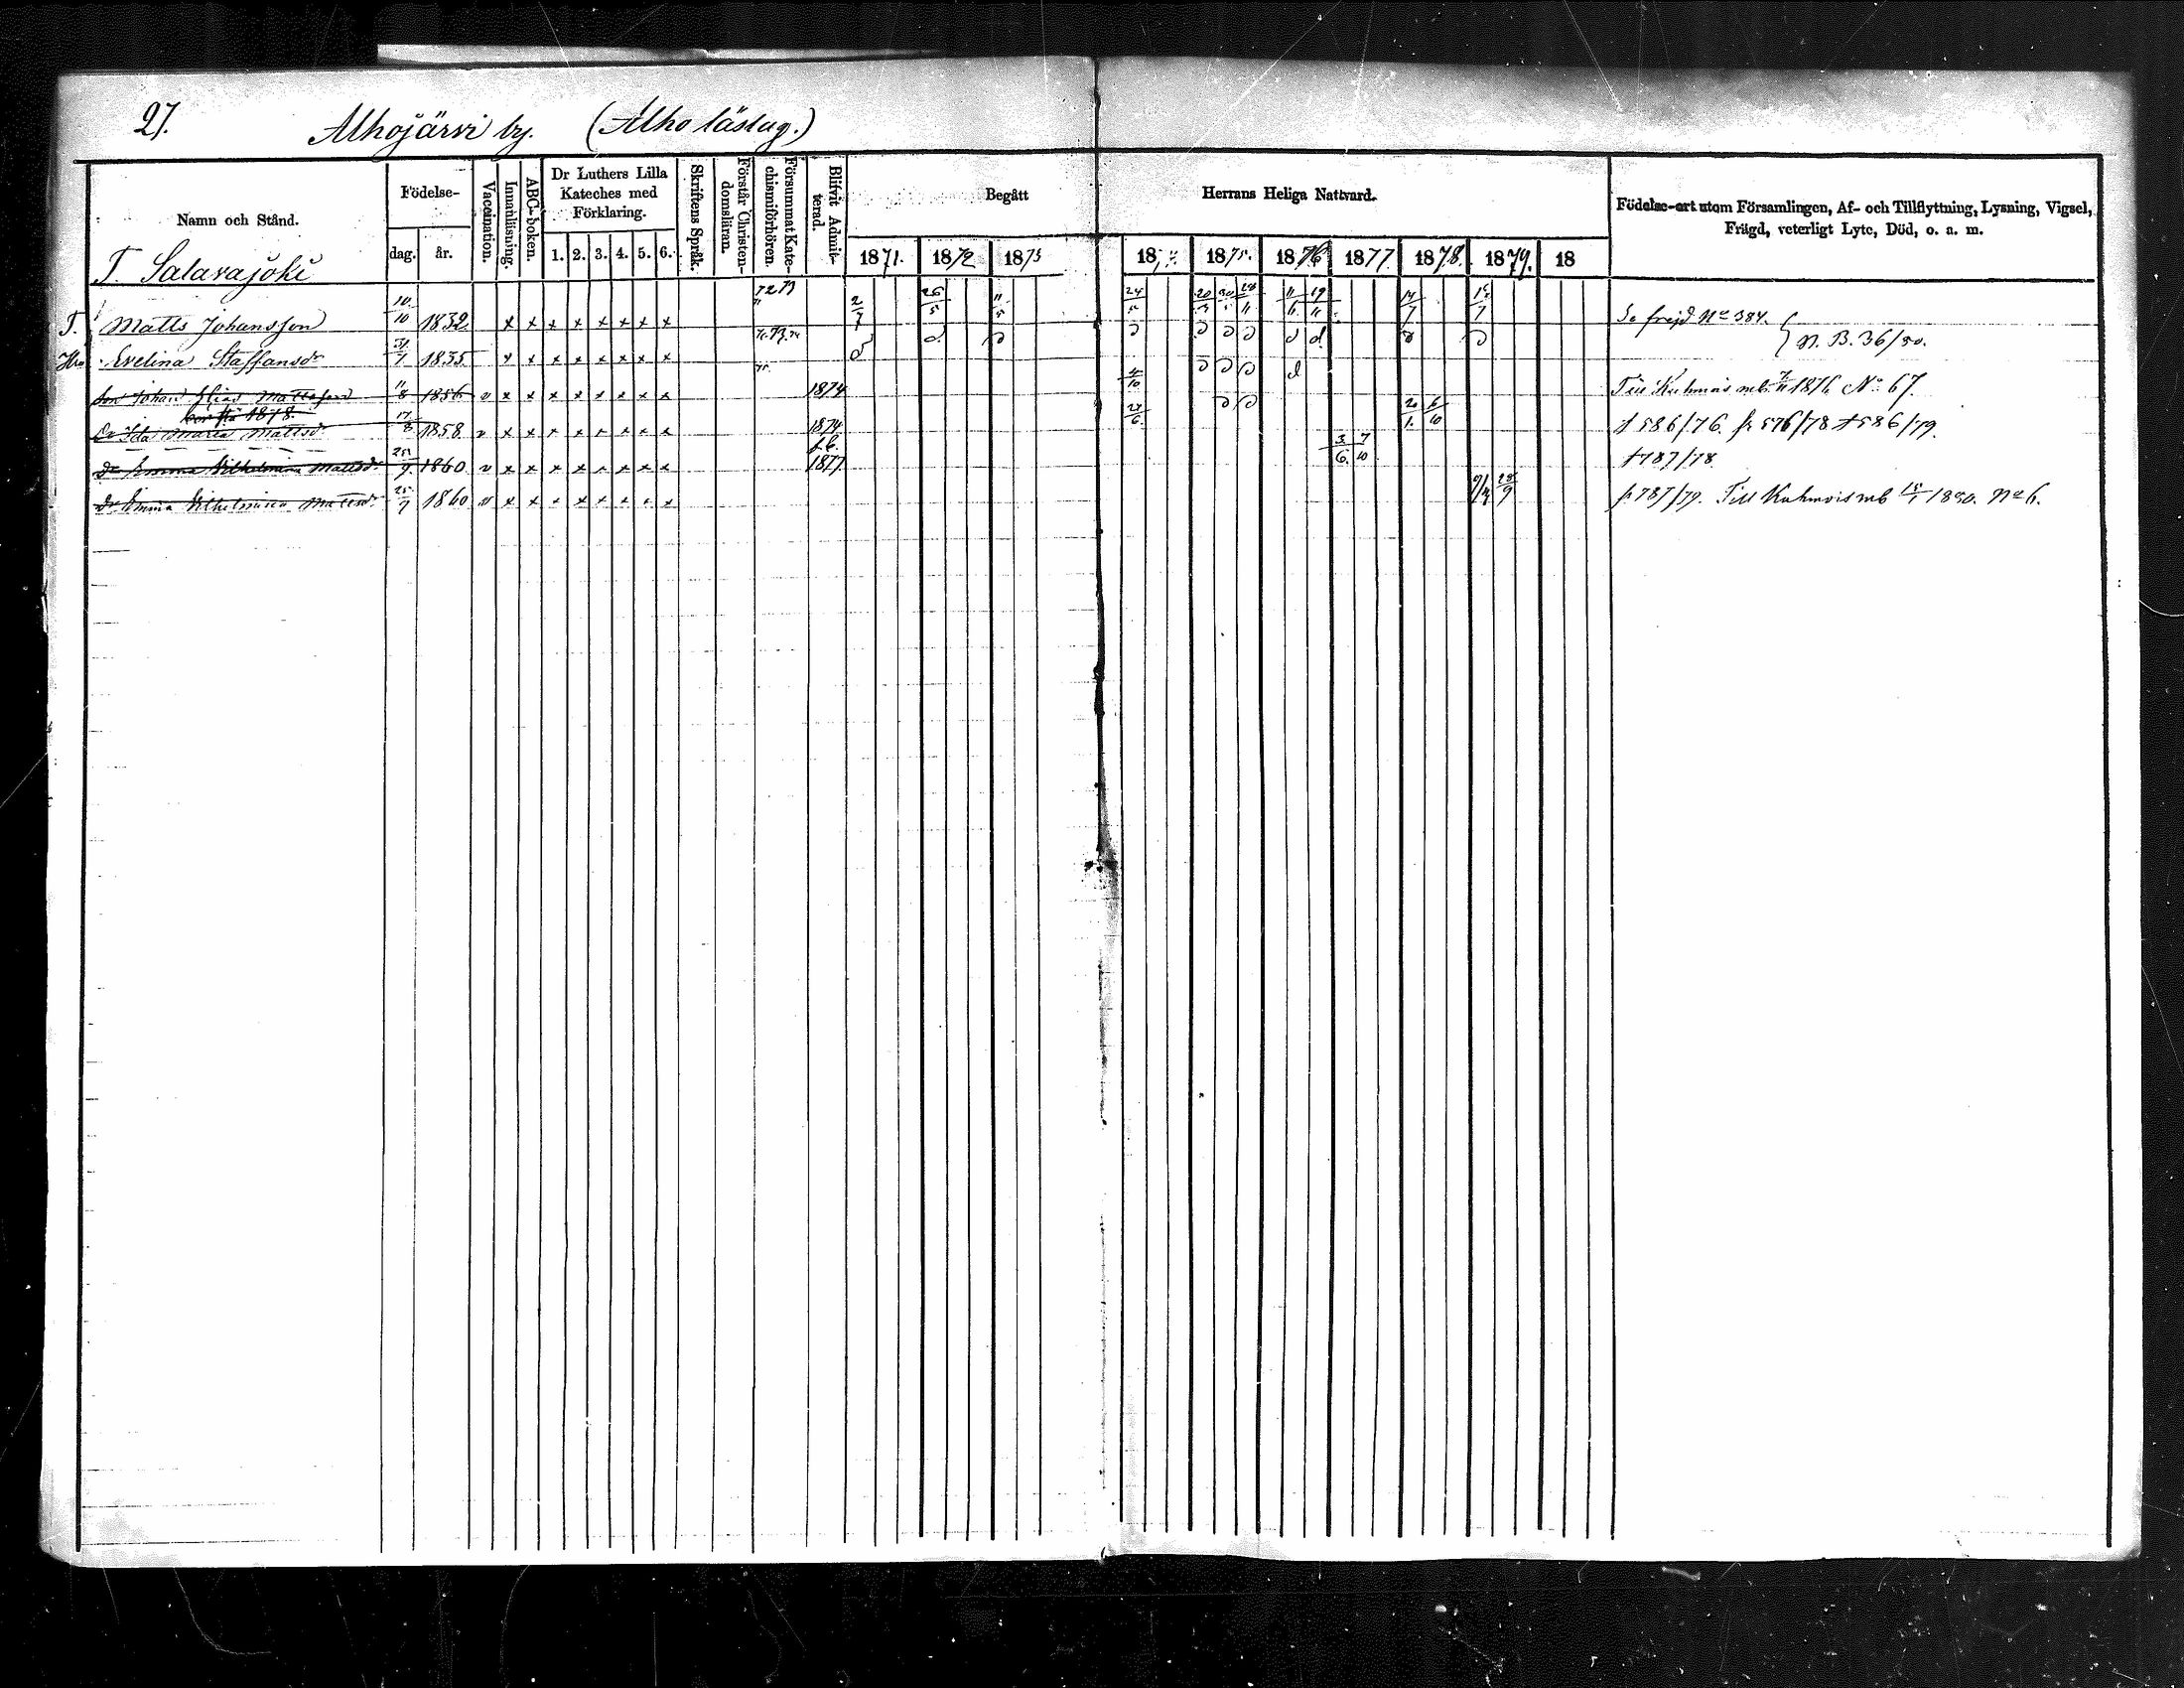 27. Alhojärvi by. (Alho läslag.)
Namn och Stånd.
Födelse-
dag. år.
Vaccination.
Innanläsning.
ABC-boken.
Dr Luthers Lilla Kateches med Förklaring.
1. 2. 3. 4. 5. 6.
Skriftens Språk.
Förstår Christendomsläran.
Försummat Katechismiförhören.
Blifvit Admitterad.
Begått Herrans Heliga Nattvard.
1871. 1872 1873 1875. 1876 1877 1878. 1879. 18
Födelse-ort utom Församlingen, Af- och Tillflyttning, Lysning, Vigsel,
Frägd, veterligt Lyte, Död, o. a. m.
T. Salavajoki
T. Matts Johansson 10/10 1832 x x x x x x x x 2/7 26/5 11/5 24/5 14/7 Se frejd No 384.
Evelina Staffansdr 1835 x x x x x x x x N. B. 36/80.
Son Johan Elias Mattsson 11/8 1856 v x x x x x x x x 1874 4/10 Till Kuhmois mb. 1876 No 67.
1878.
Dr Ida Maria Mattsdr 17/8 1858 v x x x x x x x x 1874 20/1. 6/10 586/76. fr 576/78 586/79.
Dr Emma Vilhelmina Mattsdr 25/9 1860 v x x x x x x x x 1877 3/6. 7/10 787/78.
Dr Emma Vilhelmina Mattsdr 1860 v x x x x x x x x 28/9 fr 787/79. Till Kuhmois mb 15/1 1880. No 6.